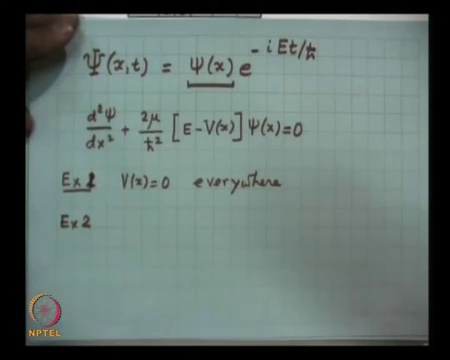 Ψ(x,t) = ψ(x) e^{-iEt/ℏ}
d²ψ/dx² + 2μ/ℏ² [E - V(x)] ψ(x) = 0
Ex 1 V(x) = 0 everywhere
Ex 2
NPTEL